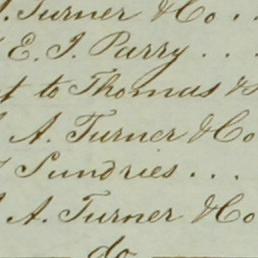 J. Turner & Co . .
E. J. Parry . . .
to Thomas &
A. Turner & Co
Sundries . . .
A. Turner & Co
do